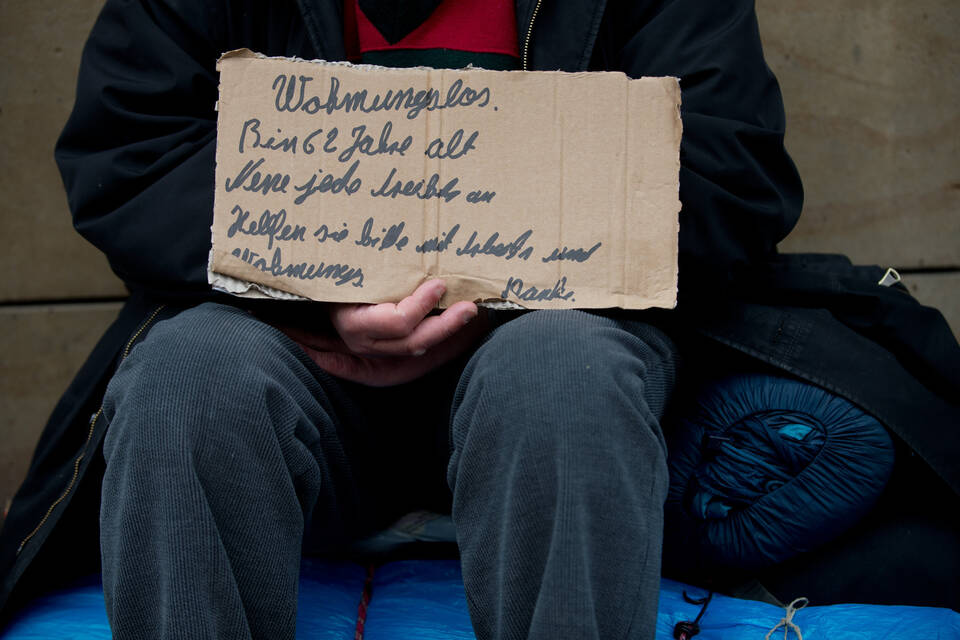 Wohnungslos.
Bin 62 Jahre alt
Nehme jede Arbeit an
Helfen sie bitte mit Arbeit und
Wohnungs
Danke.